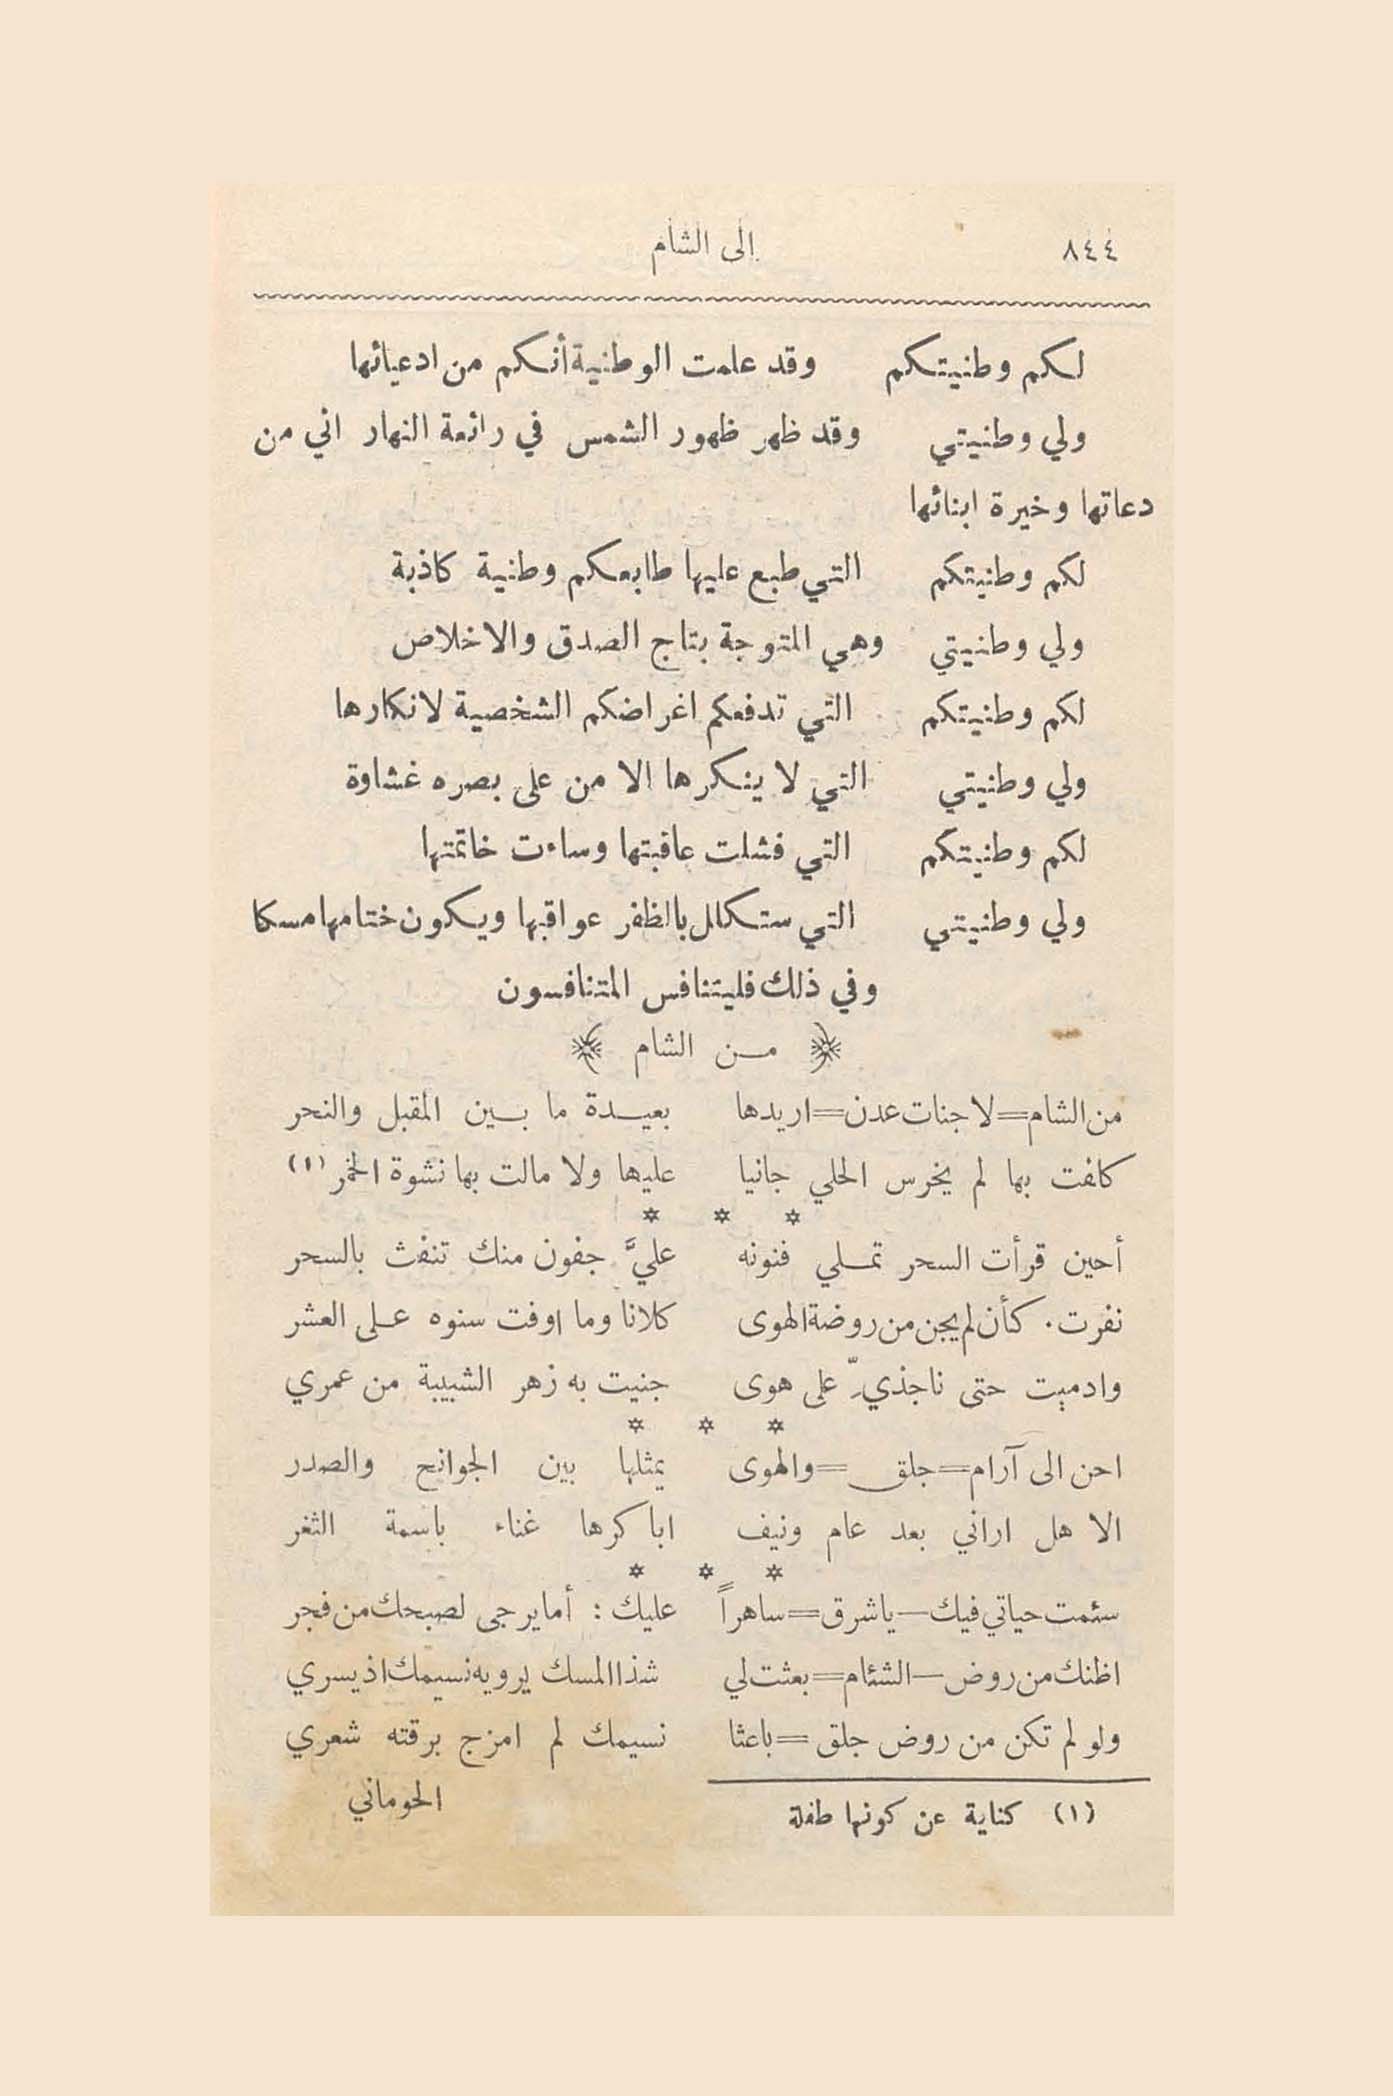 ٨٤٤ الى الشام
لكم وطنيتكم وقد علمت الوطنية أنكم من ادعيائها
ولي وطنيتي وقد ظهر ظهور الشمس في رائعة النهار اني من
دعاتها وخيرة ابنائها
لكم وطنيتكم التي طبع عليها طابعكم وطنية كاذبة
ولي وطنيتي وهي المتوجة بتاج الصدق والاخلاص
لكم وطنيتكم التي تدفعكم اغراضكم الشخصية لانكارها
ولي وطنيتي التي لا ينكرها الا من على بصره غشاوة
لكم وطنيتكم التي فشلت عاقبتها وساءت خاتمتها
ولي وطنيتي التي ستكلل بالظفر عواقبها ويكون ختامها مسكا
وفي ذلك فليتنافس المتنافسون
من الشام
من الشام=لا جنات عدن=اريدها بعيدة ما بين المقبل والنحر
كلفت بها لم يخرس الحلي جانيا عليها ولا مالت بها نشوة الخمر (١)
* * *
أحين قرأت السحر تملي فنونه عليَّ جفون منك تنفث بالسحر
نفرت. كأن لم يجن من روضة الهوى كلانا وما اوفت سنوه على العشر
وادميت حتى ناجذيّ على هوى جنيت به زهر الشبيبة من عمري
* * *
احن الى آرام=جلق=والهوى يمثلها بين الجوانح والصدر
الا هل اراني بعد عام ونيف اباكرها غناء باسمة الثغر
* * *
سئمت حياتي فيك—ياشرق=ساهراً عليك: أما يرجى لصبحك من فجر
اظنك من روض—الشئام=بعثت لي شذا المسك يرويه نسيمك اذ يسري
ولو لم تكن من روض جلق=باعثا نسيمك لم امزج برقته شعري
الحوماني
(١) كناية عن كونها طفلة